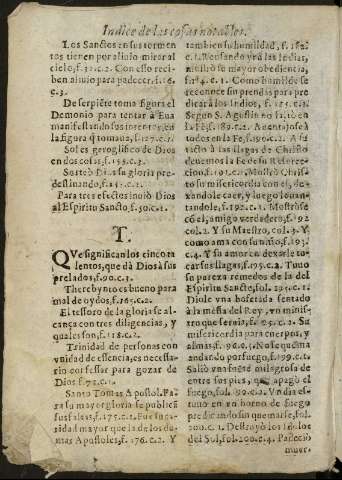 Indice de las cosas notables.
Los Sanctos en sus tormen
tos tienen por aliuio mirar al
cielo, f. 32. c. 2. Con esso reci-
ben aliuio para padecer, f. 16.
c. 3.
De serpiẽte toma figura el
Demonio para tentar à Eua
manifestando sus intentos, en
la figura q̃ tomaua,
Sol es geroglifico de Dios
en dos cosas, f. 155. c. 3.
Sorteò Dios su gloria pre-
destinando, f. 45. c. 1.
Para tres efectos inuiò Dios
al Espiritu Sancto, f. 50. c. 1.
T.
QVe significan los cinco ta
lentos, que dà Dios à sus
prelados, f. 90. c. 1.
Therebynto es bueno para
mal de oydos, f. 165. c. 2.
El tesoro de la gloria se al-
cança con tres diligencias, y
quales son, f. 118. c. 2.
Trinidad de personas con
vnidad de essencia, es necessa-
rio confessar para gozar de
Dios f. 72. c. 1.
Santo Tomas Apostol. Pa-
ra su mayor gloria se publicã
sus faltas, f. 175. c. 1. Fue su ca-
ridad mayor que la de los de-
mas Apostoles, f. 176. c. 2. Y
tambien su humildad, f. 182.
c. 1. Rehusando yr à las Indias,
mostrò se mayor obediencia,
f. 184. c. 1. Como humilde se
reconoce sin prendas para pre
dicar à los Indios, f. 185. c. 3.
Segun S. Agustin no faltò en
la Fe, f. 189. c. 2. Auentajose à
todos en la Fe, f. 190. c. 2. A
las llagas de la Fe de Christo
deuemos la Fe de su Resurrec-
cion, f. 191. c. 2. Mostrò Christo
su misericordia con el, de-
xandole caer, y luego leuan-
tandole, f. 192. c. 1. Mostròse
cõ el, amigo verdadero, f. 192
col. 2. Y su Maestro, col. 3. Y
como ama con su niño, f. 193.
c. 4. Y su amor en dexarle to-
car sus llagas, f. 195. c. 2. Tuuo
su pureza remedos de la del
Espiritu Sancto, fol. 295. c. 1.
Diole vna bofetada sentado
à la mesa del Rey, vn minis-
tro que seruia, f. 295. c. 2. Su
misericordia para cuerpos, y
almas, f. 96. c. 3. No se quema
andando por fuego, f. 199. c. 1.
Saliò vna fuente milagrosa de
entre sus pies, que apagò el
fuego, fol. 99. c. 2. Y ndia es
tuuo en vn horno de fuego
predicando sin quemarse, fol.
200. c. 1. Destruyò los Idolos
del Sol, fol. 200. c. 4. Padeciò
muer-